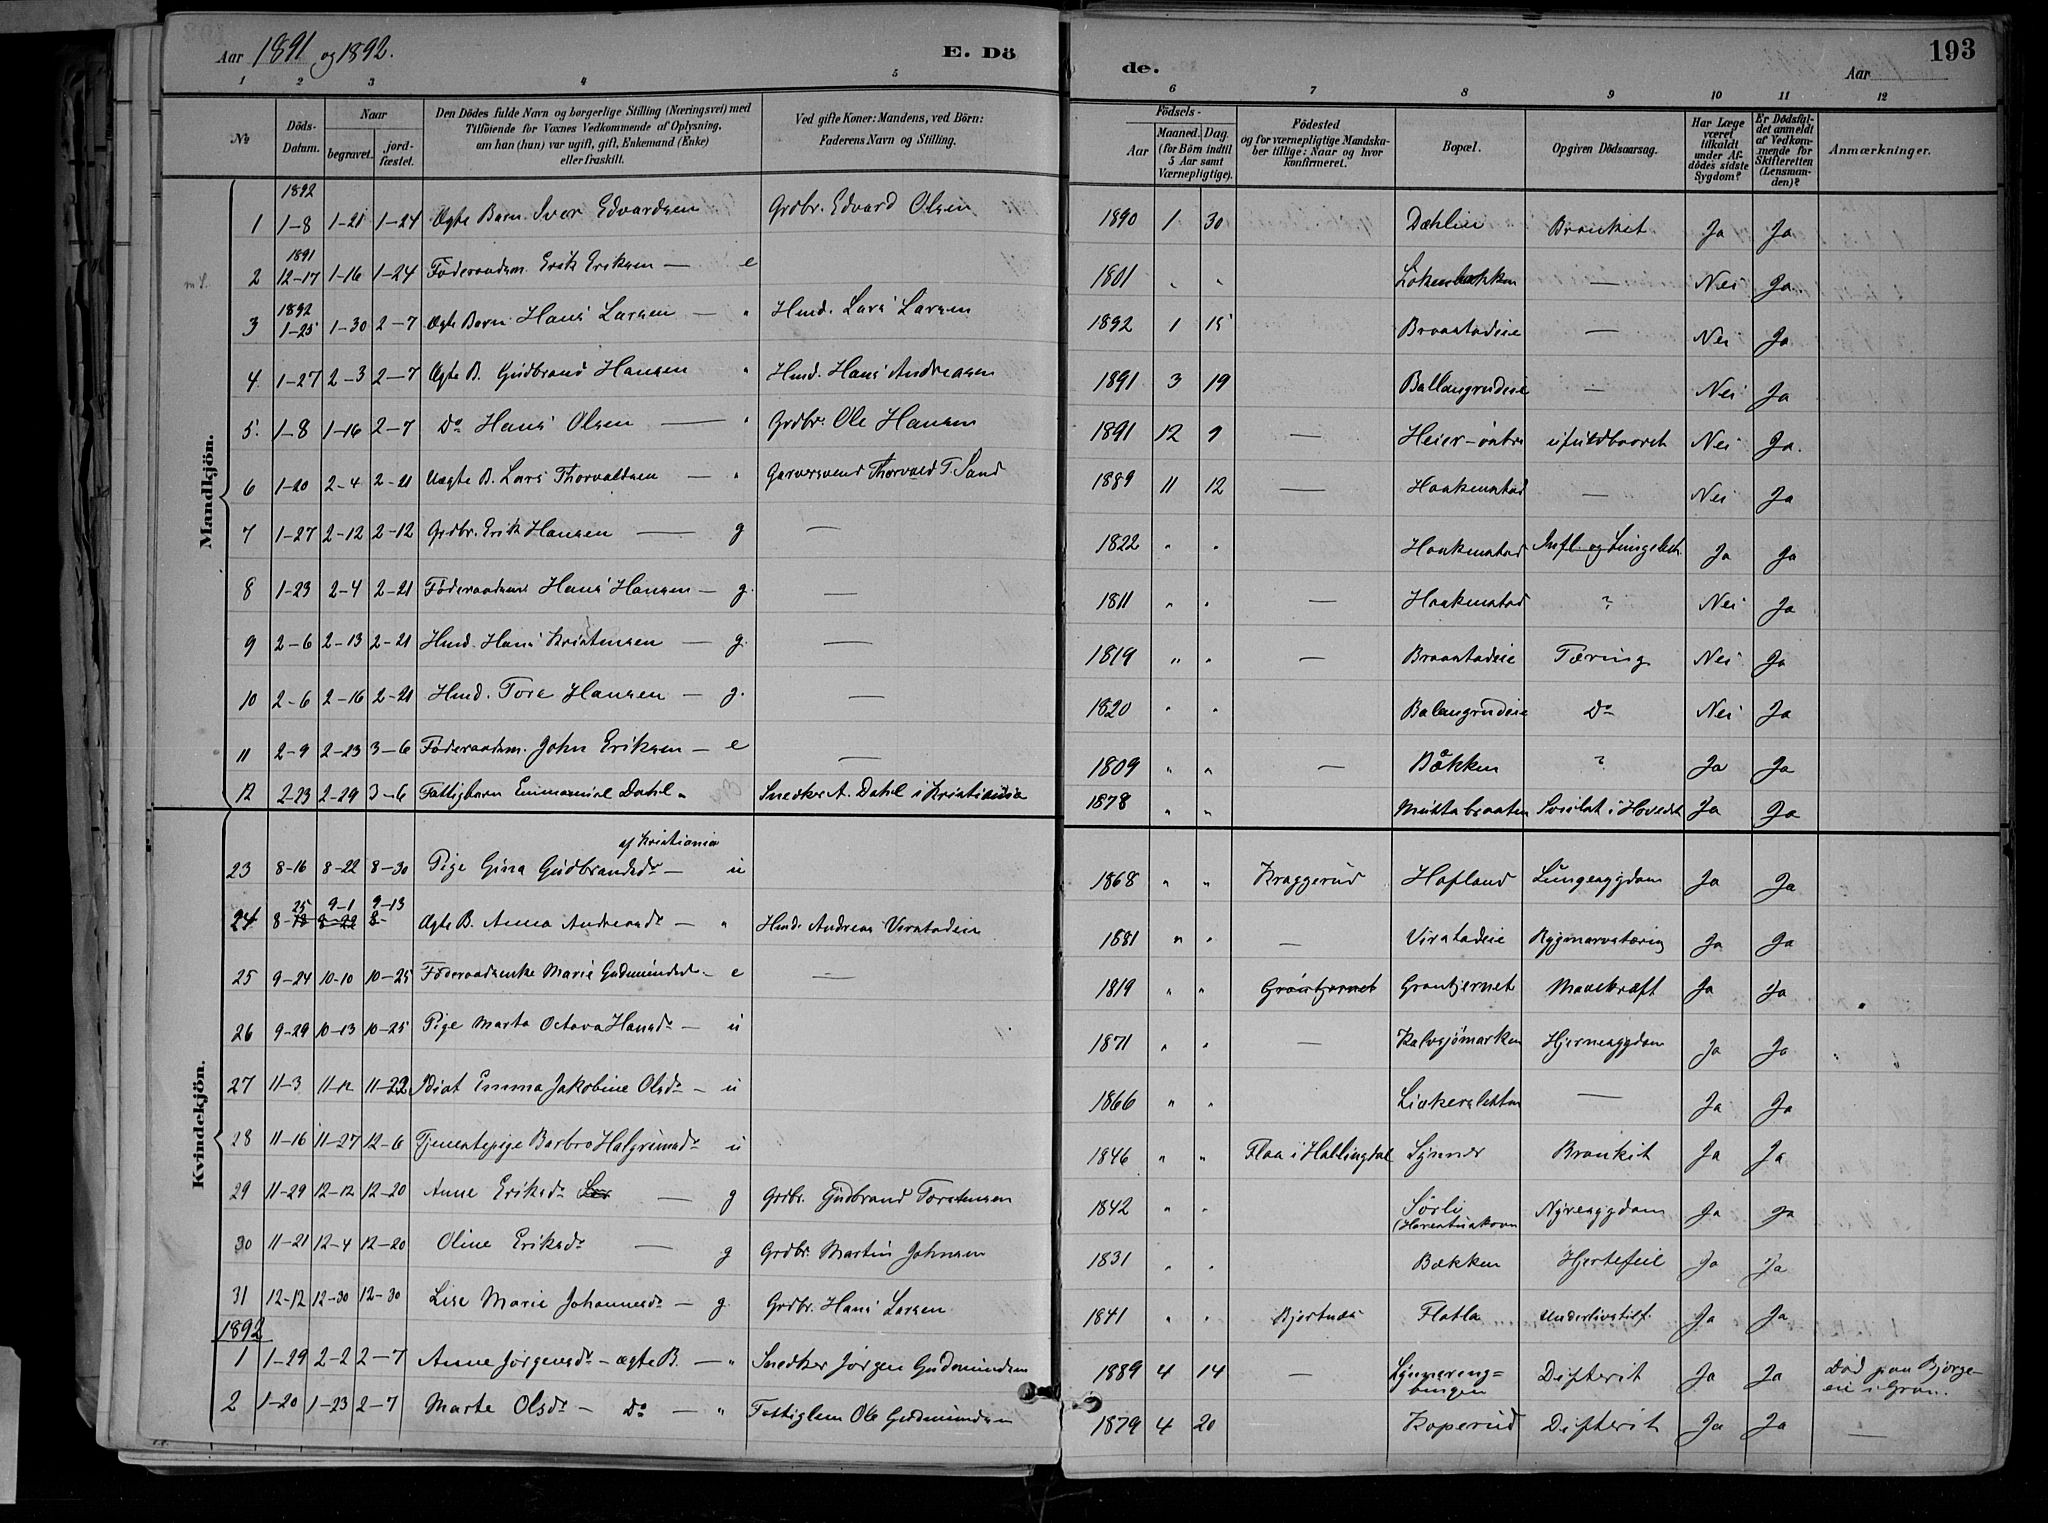 Aar 1891 og 1892. E. Dö de. Aar 193
1 2 3 4 5 6 7 8 9 10 11 12
No Döds-Datum. Naar begravet. jordfæstet. Den Dödes fulde Navn og borgerlige Stilling (Næringsvei) med Tilföiende for Voxnes Vedkommende af Oplysning, om han (hun) var ugift, gift, Enkemand (Enke) eller fraskilt. Ved gifte Koner: Mandens, ved Börn: Faderens Navn og Stilling. Födsels- Aar Maaned. Dag. (for Börn indtil 5 Aar samt Værnepligtige). Födested og for værnepligtige Mandskaber tillige: Naar og hvor konfirmeret. Bopæl. Opgiven Dödsaarsag. Har Læge været tilkaldt under Afdödes sidste Sygdom? Er Dödsfaldet anmeldt af Vedkommende for Skifteretten (Lensmanden)? Anmærkninger.
Mandkjön.
1 1892 1-8 1-21 1-24 Ægte Barn Iver Edvardsen Grdbr. Edvard Olsen 1890 1 30 Dæhlin Bronkit Ja Ja
2 1891 12-17 1-16 1-24 Føderaadsm. Erik Eriksen — e 1801 " " — Nei Ja.
3 1892 1-25 1-30 2-7 Ægte Barn Hans Larsen — " Hmd. Lars Larsen 1892 1 15 Braastadeie — Nei Ja
4 1-27 2-3 2-7 Ægte B. Gudbrand Hansen " Hmd. Hans Andreasen 1891 3 19 Ballangrudeie — Nei Ja
5. 1-8 1-16 2-7 Do Hans Olsen — " Grdbr. Ole Hansen 1891 12 9 — Heier-østre ufuldbaaret Nei Ja.
6 1-20 2-4 2-21 Uægte B. Lars Thorvaldsen — " Garversvend Thorvald T. Sand 1889 11 12 — Haakenstad — Nei Ja
7 1-27 2-12 2-12 Grdbr. Erik Hansen — g — 1822 " " Haakenstad Infl. og Lungebet. Ja Ja
8 1-23 2-4 2-21 Føderaadsm. Hans Hansen — g. — 1811 " " — Haakenstad ? Nei Ja
9 2-6 2-13 2-21 Hmd. Hans Kristensen — g. — 1819 " " — Braastadeie Tæring Nei Ja
10 2-6 2-16 2-21 Hmd. Tore Hansen — g. — 1820 " " Balangrudeie Do Nei Ja
11 2-9 2-23 3-6 Føderaadsm. John Eriksen — e — 1809 " " — Bækken ? Ja Ja
12 2-23 2-29 3-6 Fattigbarn Emmanuel Dahl " Snedker A. Dahl i Kristiania 1878 " " Muttabraaten i Hovedet Ja Ja
Kvindekjön.
23 8-16 8-22 8-30 Pige Gina Gudbrandsdr — af Kristiania u 1868 " " Kraggerud Hofland Lungesygdom Ja Ja
24 8-25 9-1 9-13 8-22 8- Ægte B. Anna Andreasdr — " Hmd. Andreas Virstadeie 1881 " " — Virstadeie Rygmarvstæring Ja Ja
25 9-24 10-10 10-25 Føderaadsenke Marie Gudmundsd — e — 1819 " " Grøntjernet Grøntjernet Mavekræft Ja Ja
26 9-29 10-13 10-25 Pige Marta Octava Hansdr — u 1871 " " — Kalvsjømarken Hjernesygdom Ja Ja
27 11-3 11-12 11-22 Idiot Emma Jakobine Olsdr — u 1866 " " Liekersletten — Ja Ja
28 11-16 11-27 12-6 Tjenestepige Barbro Halgrimsdr u 1846 " " Flaa i Hallingdal Lynner Bronkit Ja Ja
29 11-29 12-12 12-20 Anne Eriksdr — g Grdbr. Gudbrand Torstensen 1842 " " Sørli Nyresygdom Ja Ja
30 11-21 12-4 12-20 Oline Eriksdr — g Grdbr. Martin Johnsen 1831 " " Bækken Hjertefeil Ja Ja
31 12-12 12-30 12-30 Lise Marie Johannesdr — g. Grdbr. Hans Larsen 1841 " " Bjertnæs Flatla Underlivstilf. Ja Ja
1892
1 1-29 2-2 2-7 Anne Jørgensdr — ægte B. — " Snedker Jørgen Gudmundsen 1889 4 14 — Lynnereng=bingen Difterit Ja Ja Død paa Bjørge-eie i Gran.
2 1-20 1-23 2-7 Marte Olsdr — Do — " Fattiglem Ole Gudmundsen 1879 4 20 Koperud Difterit Ja Ja —